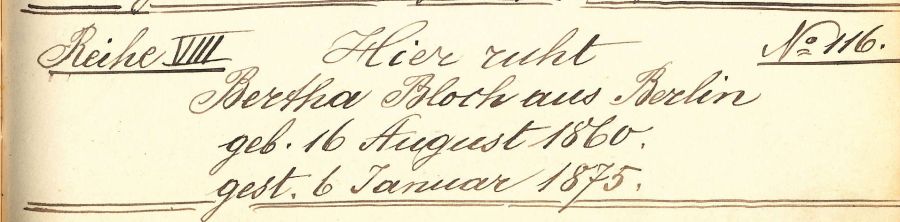 Reihe VIII Hier ruht No 116.
Bertha Bloch aus Berlin
geb. 16 August 1860.
gest. 6 Januar 1875.